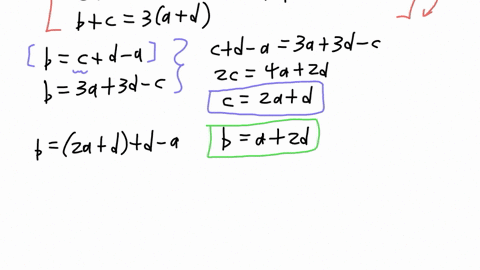 b+c=3(a+d)
[b=c+d-a]
b=3a+3d-c
c+d-a=3a+3d-c
2c=4a+2d
c=2a+d
b=(2a+d)+d-a
b=a+2d